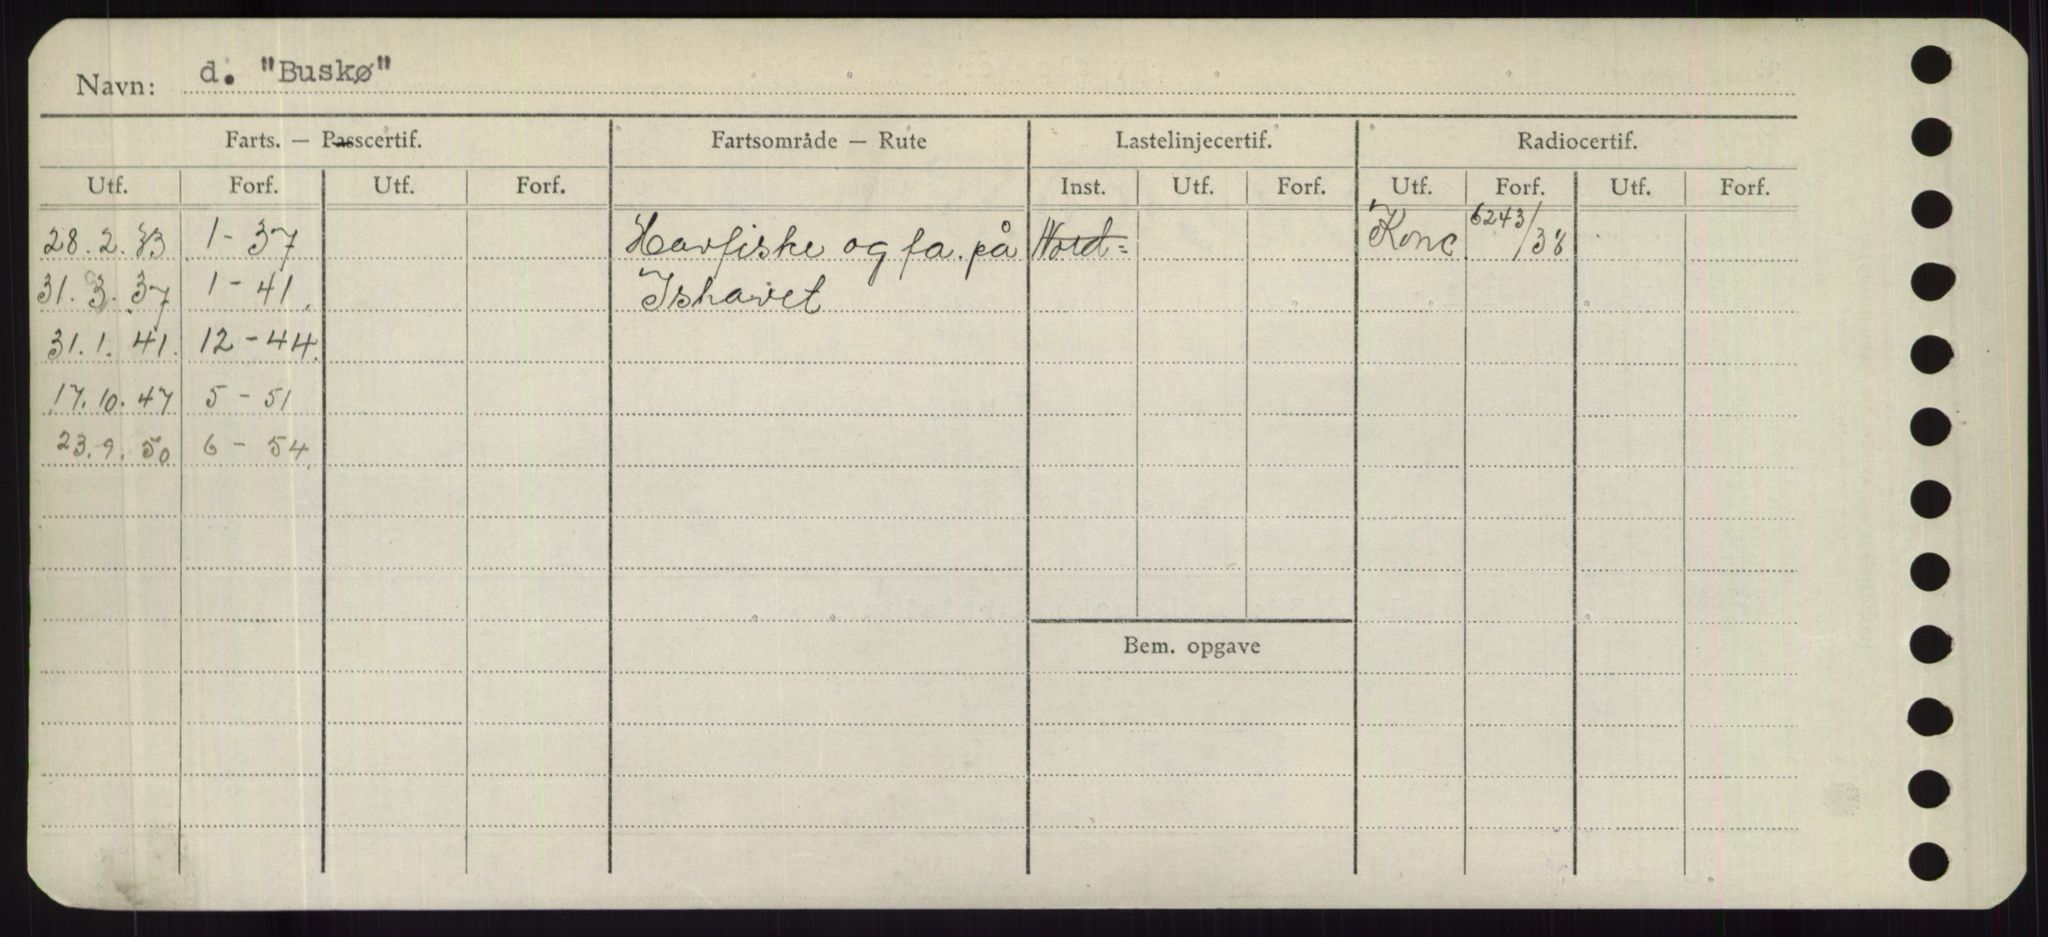 Navn: d. "Buskø"
Farts. — Passcertif. Fartsområde — Rute Lastelinjecertif. Radiocertif.
Utf. Forf. Utf. Forf. Inst. Utf. Forf. Utf. Forf. Utf. Forf.
28.2.33 1-37 Havfiske og fa. på Nord= Konc 6243/38
31.3.37 1-41. Ishavet
31.1.41. 12-44.
17.10.47 5-51
23.9.50 6-54
Bem. opgave